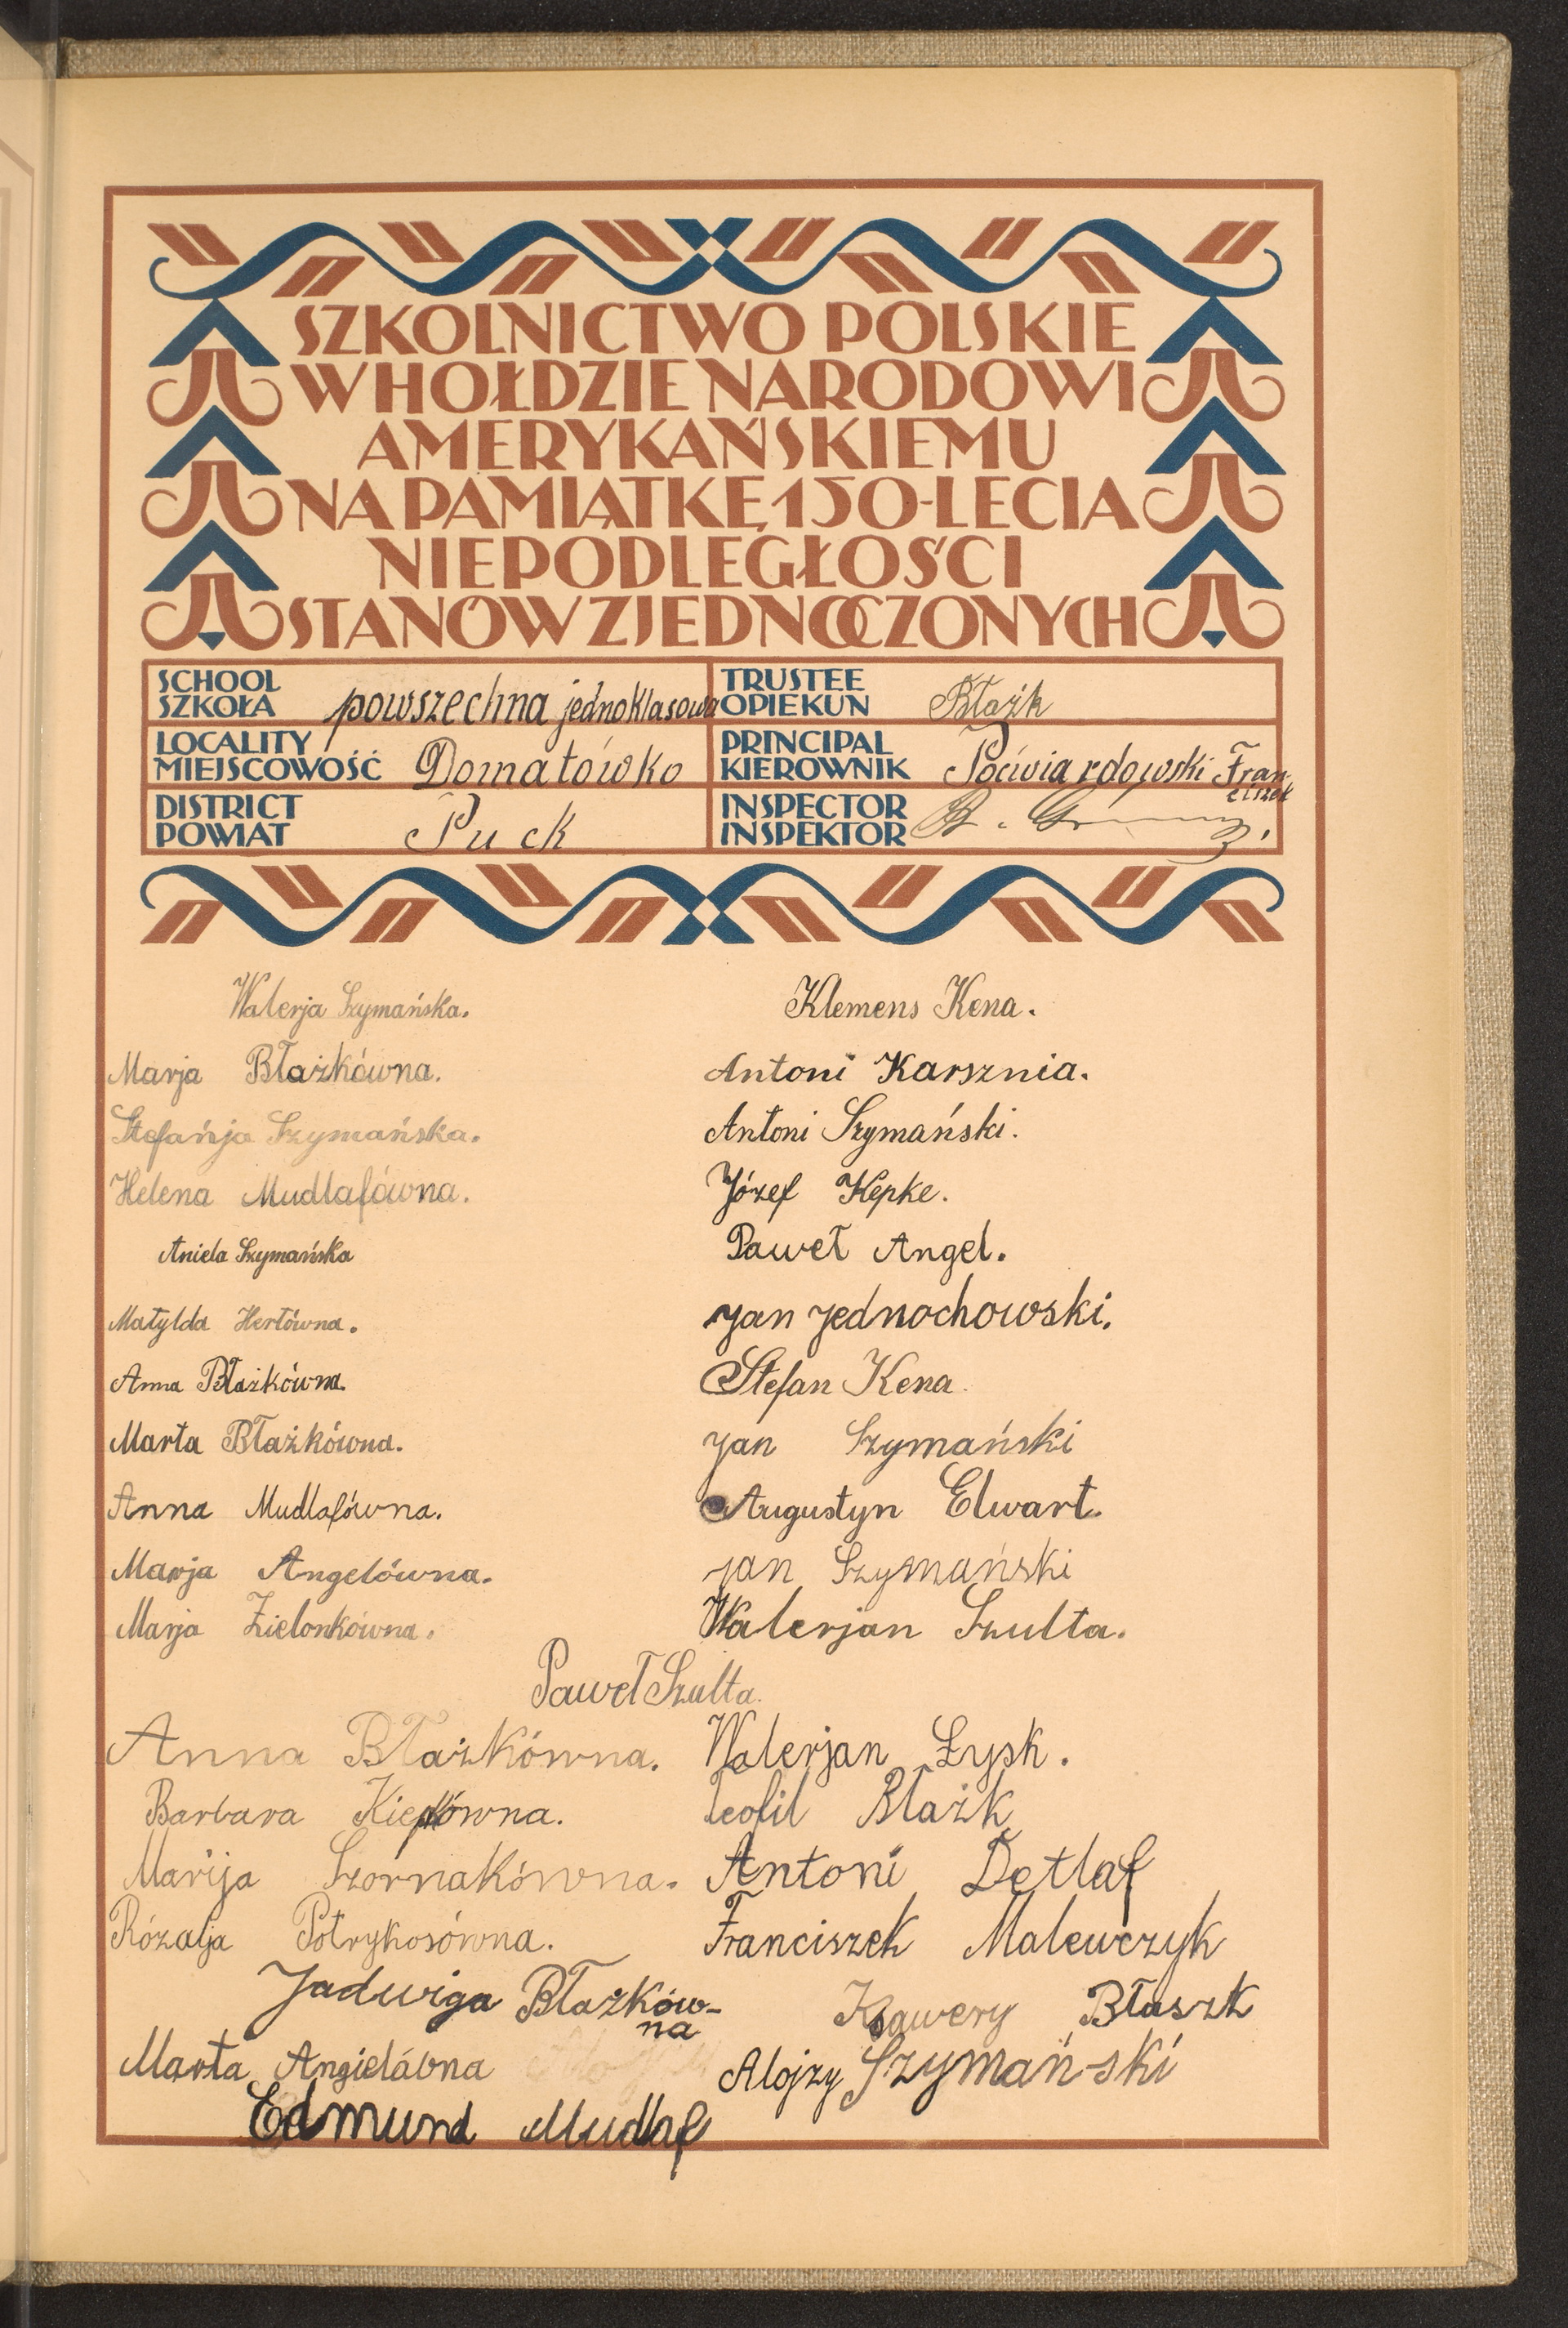 SZKOLNICTWO POLSKIE
W HOŁDZIE NARODOWI
AMERYKAŃSKIEMU
NA PAMIĄTKĘ 150-LECIA
NIEPODLEGŁOŚCI
STANÓW ZJEDNOCZONYCH
SCHOOL
SZKOŁA powszechna jednoklasowa
TRUSTEE
OPIEKUN Błażk
LOCALITY
MIEJSCOWOŚĆ Domatówko
PRINCIPAL
KIEROWNIK Poćwiardowski Fran
ciszek
DISTRICT
POWIAT Puck
INSPECTOR
INSPEKTOR
Walerja Szymańska.
Klemens Kena.
Marja Błażkówna.
Antoni Karsznia.
Stefańja Szymańska.
Antoni Szymański.
Helena Mudlafówna.
Józef Kepke.
Aniela Szymańska
Paweł Angel.
Matylda Hertówna.
Jan Jednochowski.
Anna Błażkówna.
Stefan Kena.
Marta Błażkówna.
Jan Szymański
Anna Mudlafówna.
Augustyn Elwart.
Marja Angelówna.
Jan Szymański
Marja Zielonkówna.
Walerjan Szulta.
Paweł Szulta.
Anna Błażkówna.
Walerjan Łysk.
Barbara
Teofil Błażk
Marija Szornakówna.
Antoni Detlaf
Rózalja Potrykosówna.
Franciszek Malewczyk
Jadwiga Błażków-
na
Ksawery Błaszk
Marta Angielówna
Alojzy Szymań-ski
Edmund Mudlaf